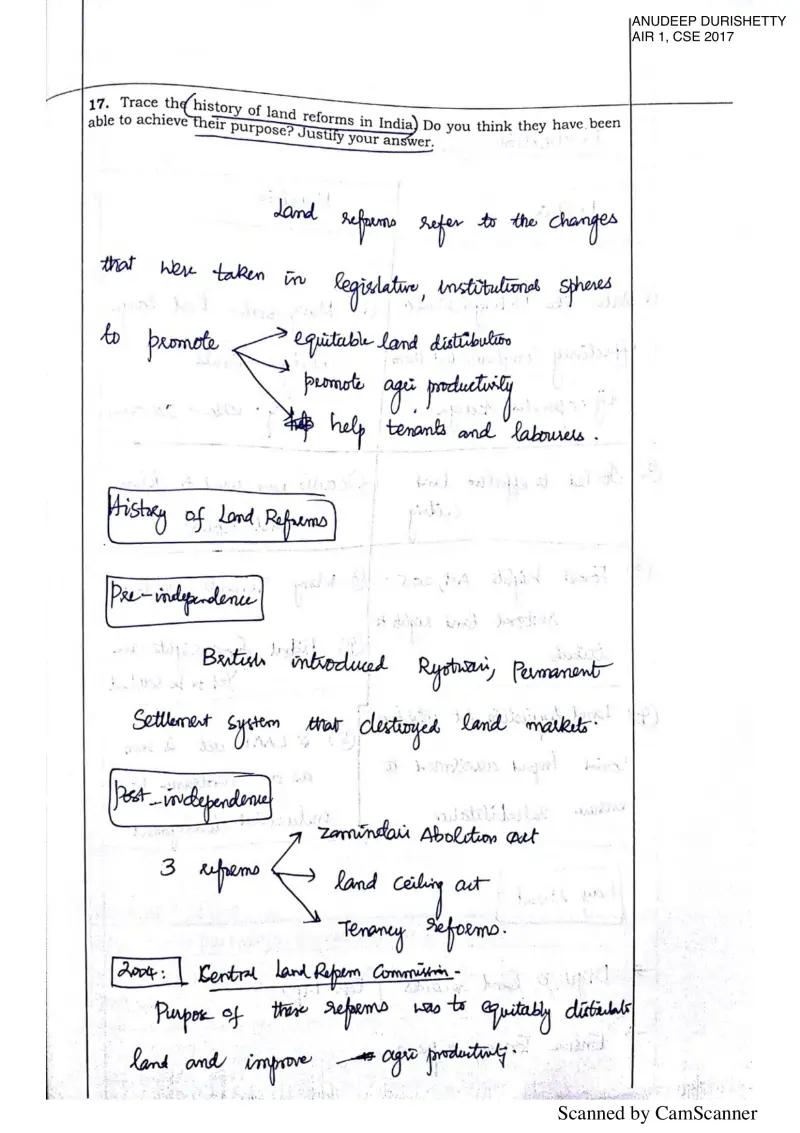 ANUDEEP DURISHETTY
AIR 1, CSE 2017
17. Trace the history of land reforms in India. Do you think they have been
able to achieve their purpose? Justify your answer.
Land reforms refer to the changes
that were taken in legislative, institutional spheres
to promote → equitable land distribution
→ promote agri productivity
→ help tenants and labourers.
History of Land Reforms
Pre-independence
British introduced Ryotwari, Permanent
Settlement system that destroyed land markets.
Post-independence
3 reforms → Zamindari Abolition act
→ land ceiling act
→ Tenancy reforms.
2004: Central Land Reform Commission-
Purpose of these reforms was to equitably distribute
land and improve agri productivity.
Scanned by CamScanner